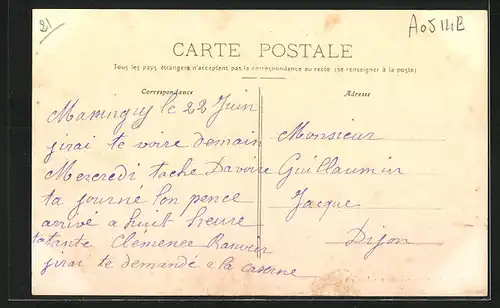 21
A0511LB
CARTE POSTALE
Tous les pays étrangers n'acceptent pas la correspondance au recto (se renseigner à la poste)
Correspondance
Adresse
Massingy le 22 Juin
jirai te voire demain
Mercredi tache Davoire
ta journé lon pence
arrivé a huit heure
ta tante Clemence
jirai te demandé a la caserne
Monsieur
Guillaumin
Jacque
Dijon